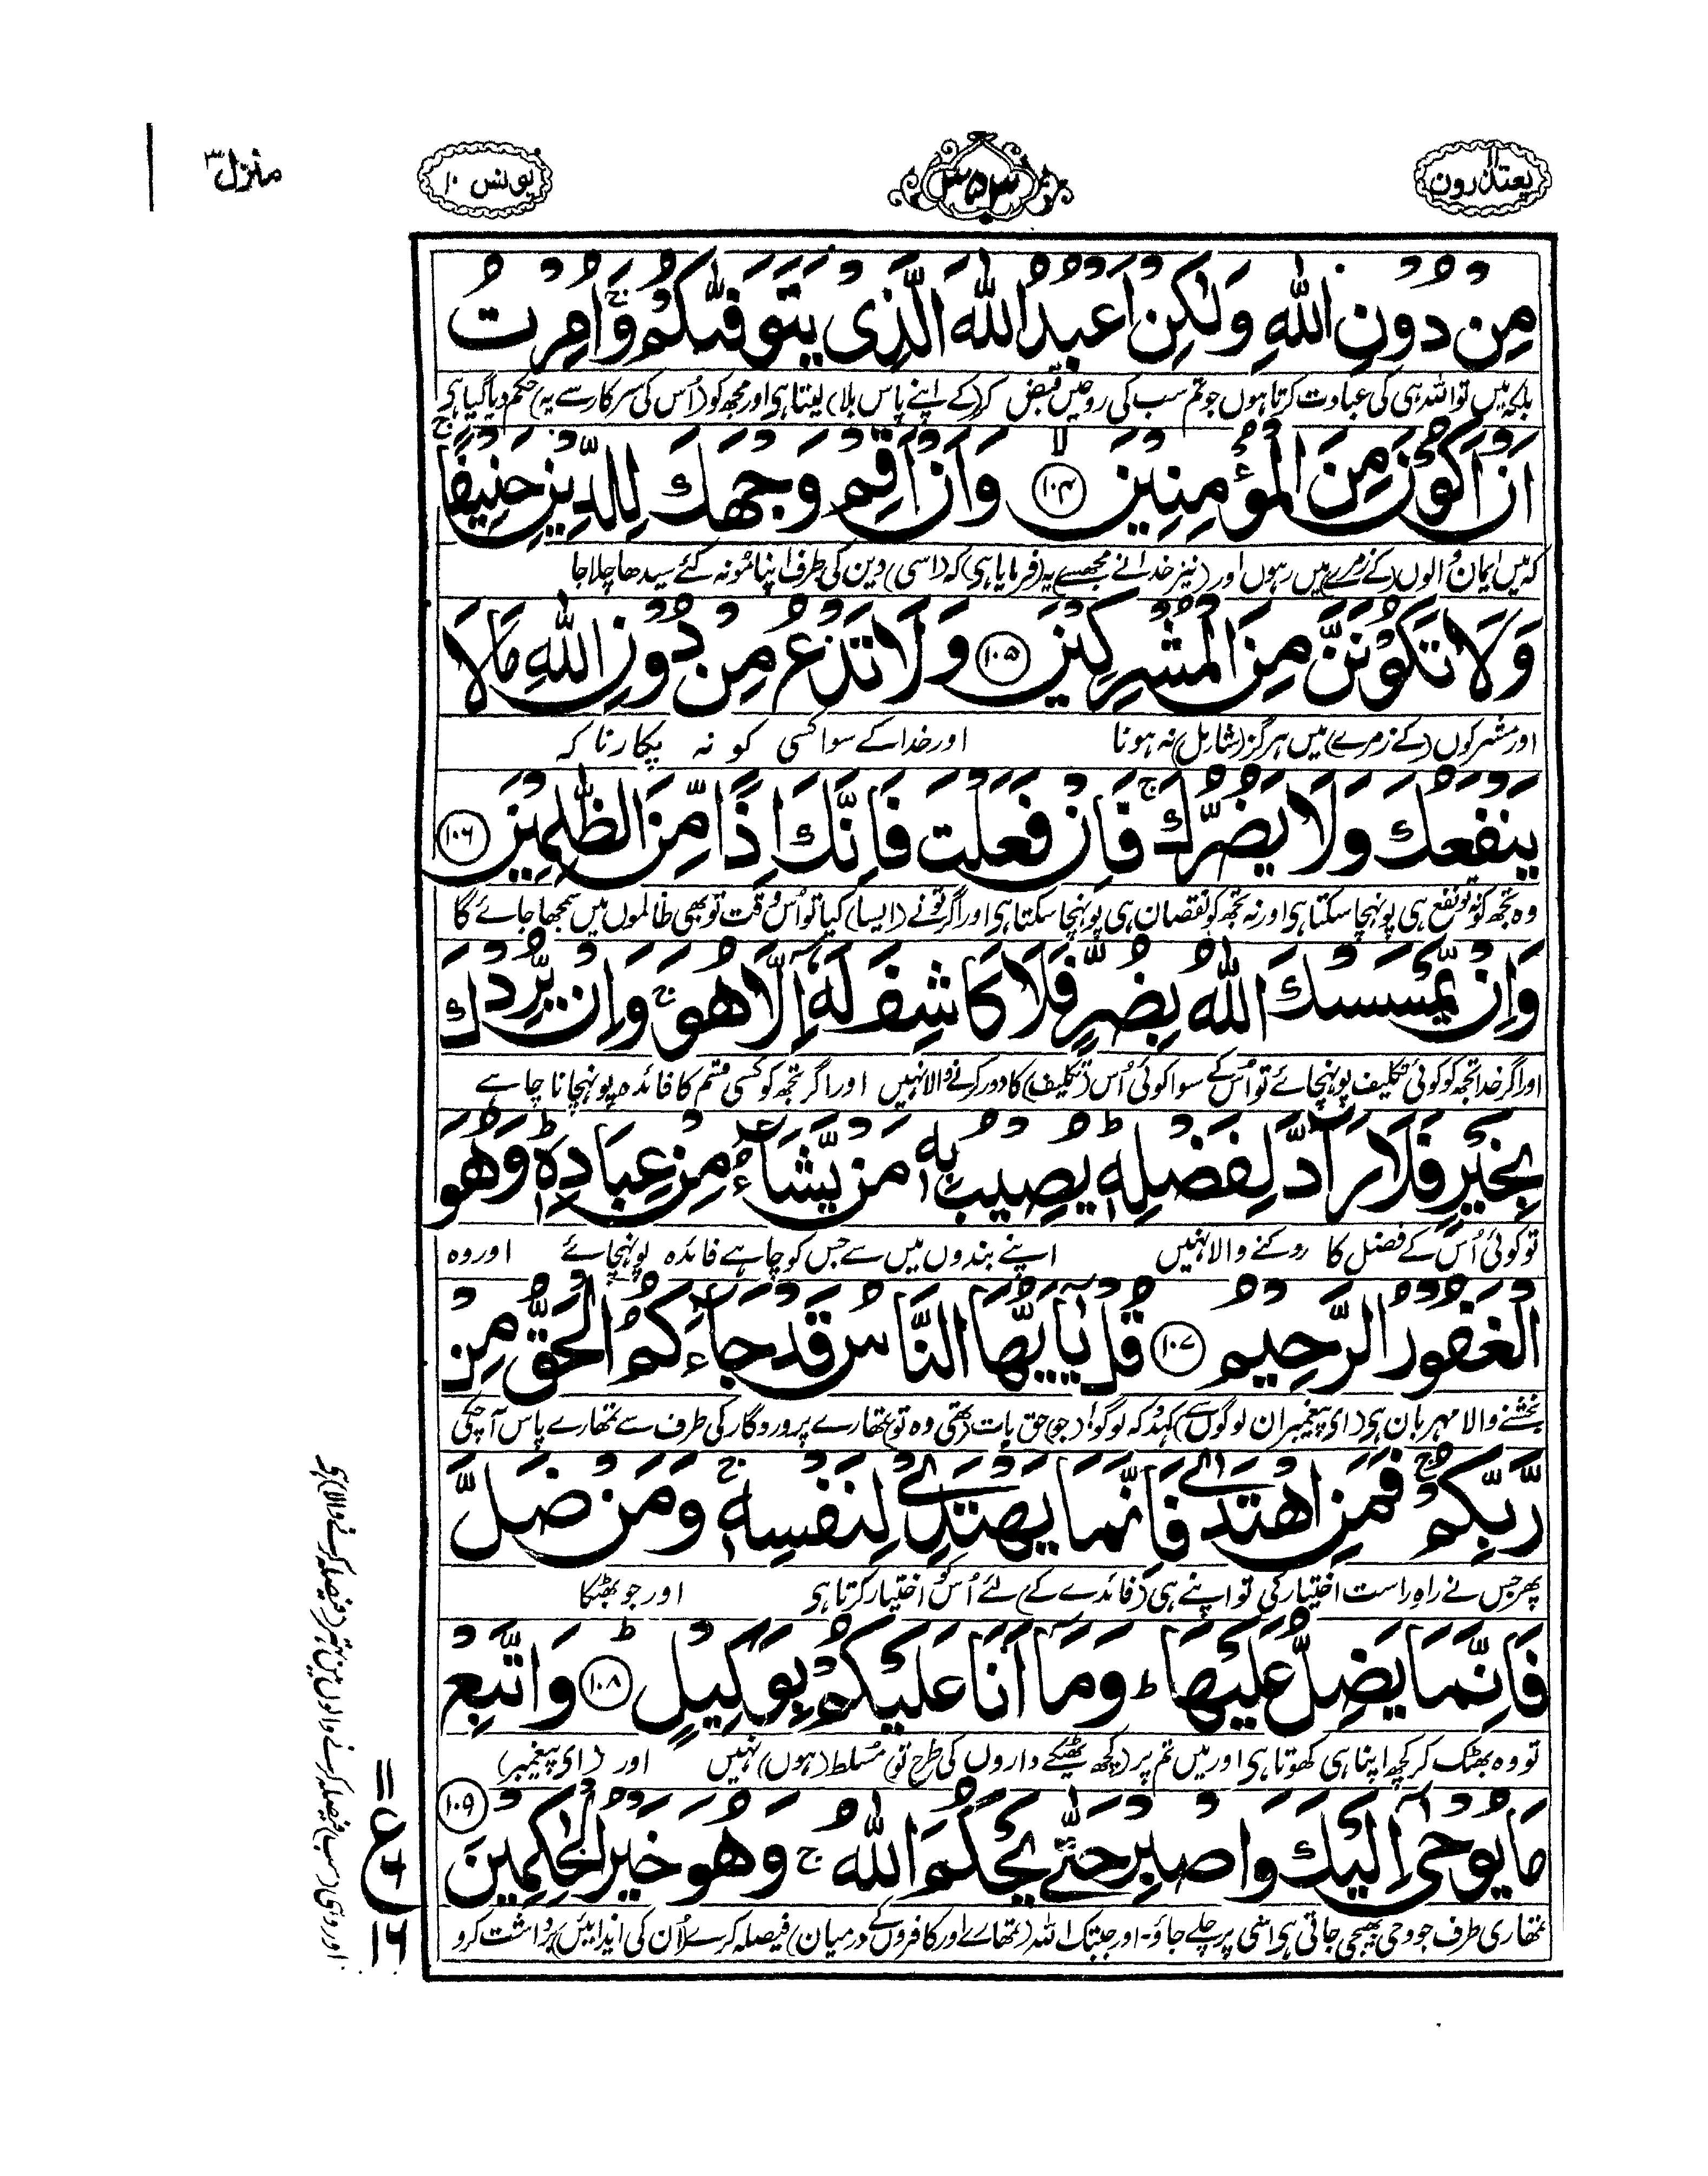 یعتذرون ۱۱
۳۵۳
یونس ۱۰
منزل ۳
مِنْ دُوْنِ اللّٰهِ وَلٰكِنْ اَعْبُدُ اللّٰهَ الَّذِیْ یَتَوَفّٰىكُمْ ۚۖ وَاُمِرْتُ
بلکہ میں تو اللہ ہی کی عبادت کرتا ہوں جو تم سب کی روحیں قبض کر (کے اپنے پاس بلا) لیتا ہی اور مجھ کو (اُس کی سرکار سے یہ) حکم دیا گیا ہی
اَنْ اَكُوْنَ مِنَ الْمُؤْمِنِیْنَ ۙ ﴿۱۰۴﴾ وَاَنْ اَقِمْ وَجْهَكَ لِلدِّیْنِ حَنِیْفًا ۚ
کہ میں ایمان والوں (کے زمرے) میں رہوں اور (نیز خدا نے مجھسے یہ) فرمایا ہی کہ (اسی) دین کی طرف اپنا مُونہ کئے سیدھا چلا جا
وَلَا تَكُوْنَنَّ مِنَ الْمُشْرِكِیْنَ ﴿۱۰۵﴾ وَلَا تَدْعُ مِنْ دُوْنِ اللّٰهِ مَا لَا
اور مشرکوں (کے زمرے) میں ہرگز (شامل) نہ ہونا اور خدا کے سوا کسی کو نہ پکارنا کہ
یَنْفَعُكَ وَلَا یَضُرُّكَ ۚ فَاِنْ فَعَلْتَ فَاِنَّكَ اِذًا مِّنَ الظّٰلِمِیْنَ ﴿۱۰۶﴾
وہ تجھ کو نہ تو نفع ہی پونہچا سکتا ہی اور نہ تجھ کو نقصان ہی پونہچا سکتا ہی اور اگر تونے (ایسا) کیا تو اُس وقت تو بھی ظالموں میں سمجھا جائے گا
وَاِنْ یَّمْسَسْكَ اللّٰهُ بِضُرٍّ فَلَا كَاشِفَ لَهٗۤ اِلَّا هُوَ ۚ وَاِنْ یُّرِدْكَ
اور اگر خدا تجھ کو کوئی تکلیف پونہچائے تو اُس کے سوا کوئی اُس (تکلیف) کا دور کرنے والا نہیں اور اگر تجھ کو کسی قسم کا فائدہ پونہچانا چاہے
بِخَیْرٍ فَلَا رَآدَّ لِفَضْلِهٖ ؕ یُصِیْبُ بِهٖ مَنْ یَّشَآءُ مِنْ عِبَادِهٖ ؕ وَهُوَ
تو کوئی اُس کے فضل کا روکنے والا نہیں اپنے بندوں میں سے جس کو چاہے فائدہ پونہچائے اور وہ
الْغَفُوْرُ الرَّحِیْمُ ﴿۱۰۷﴾ قُلْ یٰۤاَیُّهَا النَّاسُ قَدْ جَآءَكُمُ الْحَقُّ مِنْ
بخشنے والا مہربان ہی (ای پیغمبر ان لوگوں سے) کہدو کہ لوگو! (جو) حق بات (تھی وہ تو) تمھارے پروردگار کی طرف سے تمھارے پاس آ چکی
رَّبِّكُمْ ۚ فَمَنِ اهْتَدٰی فَاِنَّمَا یَهْتَدِیْ لِنَفْسِهٖ ۚ وَمَنْ ضَلَّ
پھر جس نے راہ راست اختیار کی تو اپنے ہی (فائدے کے) لئے اُس کو اختیار کرتا ہی اور جو بھٹکا
فَاِنَّمَا یَضِلُّ عَلَیْهَا ۚ وَمَاۤ اَنَا عَلَیْكُمْ بِوَكِیْلٍ ؕ ﴿۱۰۸﴾ وَاتَّبِعْ
تو وہ بھٹک کر کچھ اپنا ہی کھوتا ہی اور میں تم پر (کچھ ٹھیکے داروں کی طرح تو) مُسلط (ہوں) نہیں اور (ای پیغمبر)
مَا یُوْحٰۤی اِلَیْكَ وَاصْبِرْ حَتّٰی یَحْكُمَ اللّٰهُ ۚ وَهُوَ خَیْرُ الْحٰكِمِیْنَ ﴿۱۰۹﴾
تمھاری طرف جو وحی بھیجی جاتی ہی اسی پر چلے جاؤ۔ اور جبتک اللہ (تمھارے اور کافروں کے درمیان) فیصلہ کرے اُن کی ایذائیں برداشت کرو
۱۱
ع ۶
۱۶
اور وہی (سب) فیصلہ کرنے والوں میں بہتر (فیصلہ کرنے والا) ہی